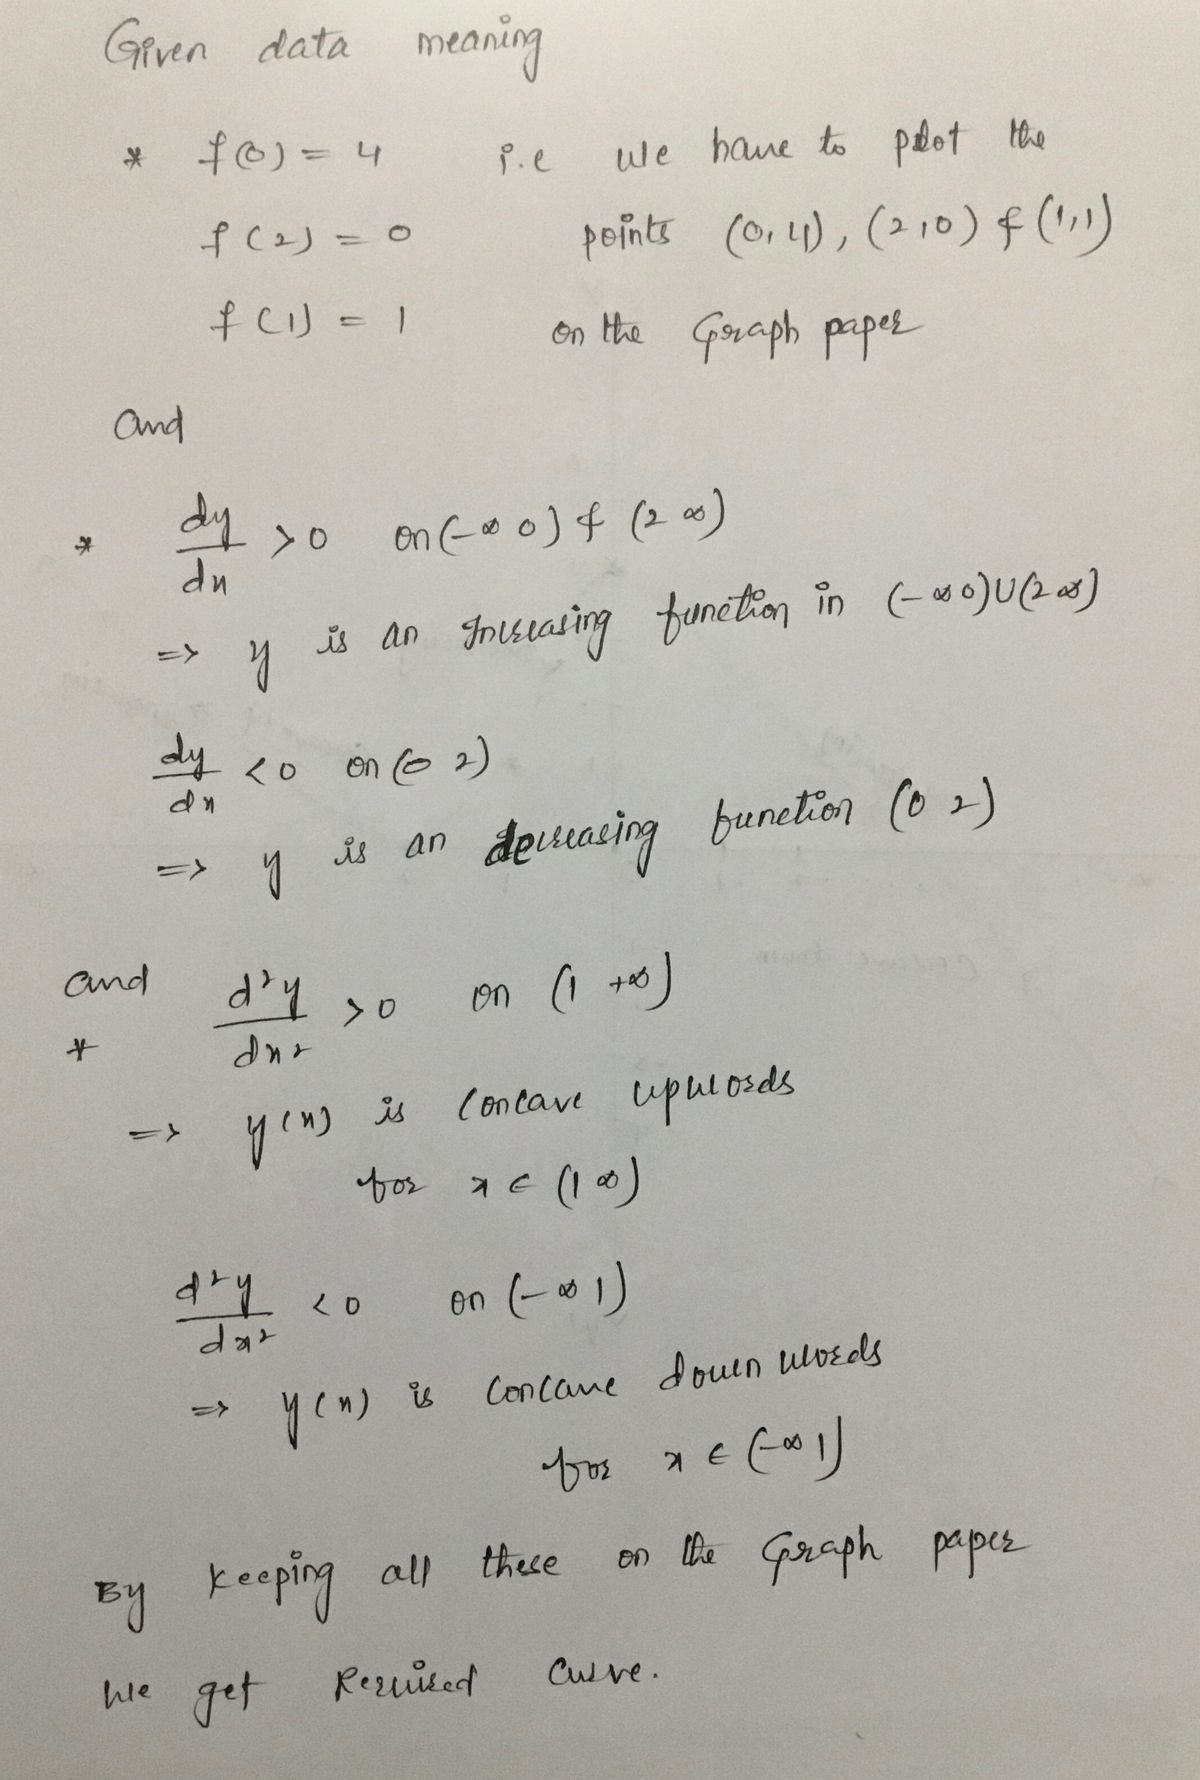 Given data meaning
* f(0) = 4 i.e we have to plot the
f(2) = 0 points (0,4), (2,0) & (1,1)
f(1) = 1 on the Graph paper
and
* dy/dx > 0 on (-∞ 0) & (2 ∞)
=> y is an Increasing function in (-∞ 0)∪(2 ∞)
dy/dx < 0 on (0 2)
=> y is an decreasing function (0 2)
and
* d²y/dx² > 0 on (1 +∞)
=> y(x) is Concave upwords
for x ∈ (1 ∞)
d²y/dx² < 0 on (-∞ 1)
=> y(x) is Concave down words
for x ∈ (-∞ 1)
By keeping all these on the Graph paper
we get Required curve.